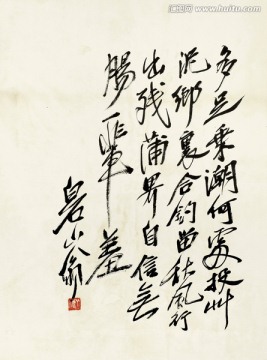 www.huitu.com
多足乘潮何處投艸
泥鄉裏合鈎留秋風行
出殘蒲界自信無
腸輩羞
白石山翁